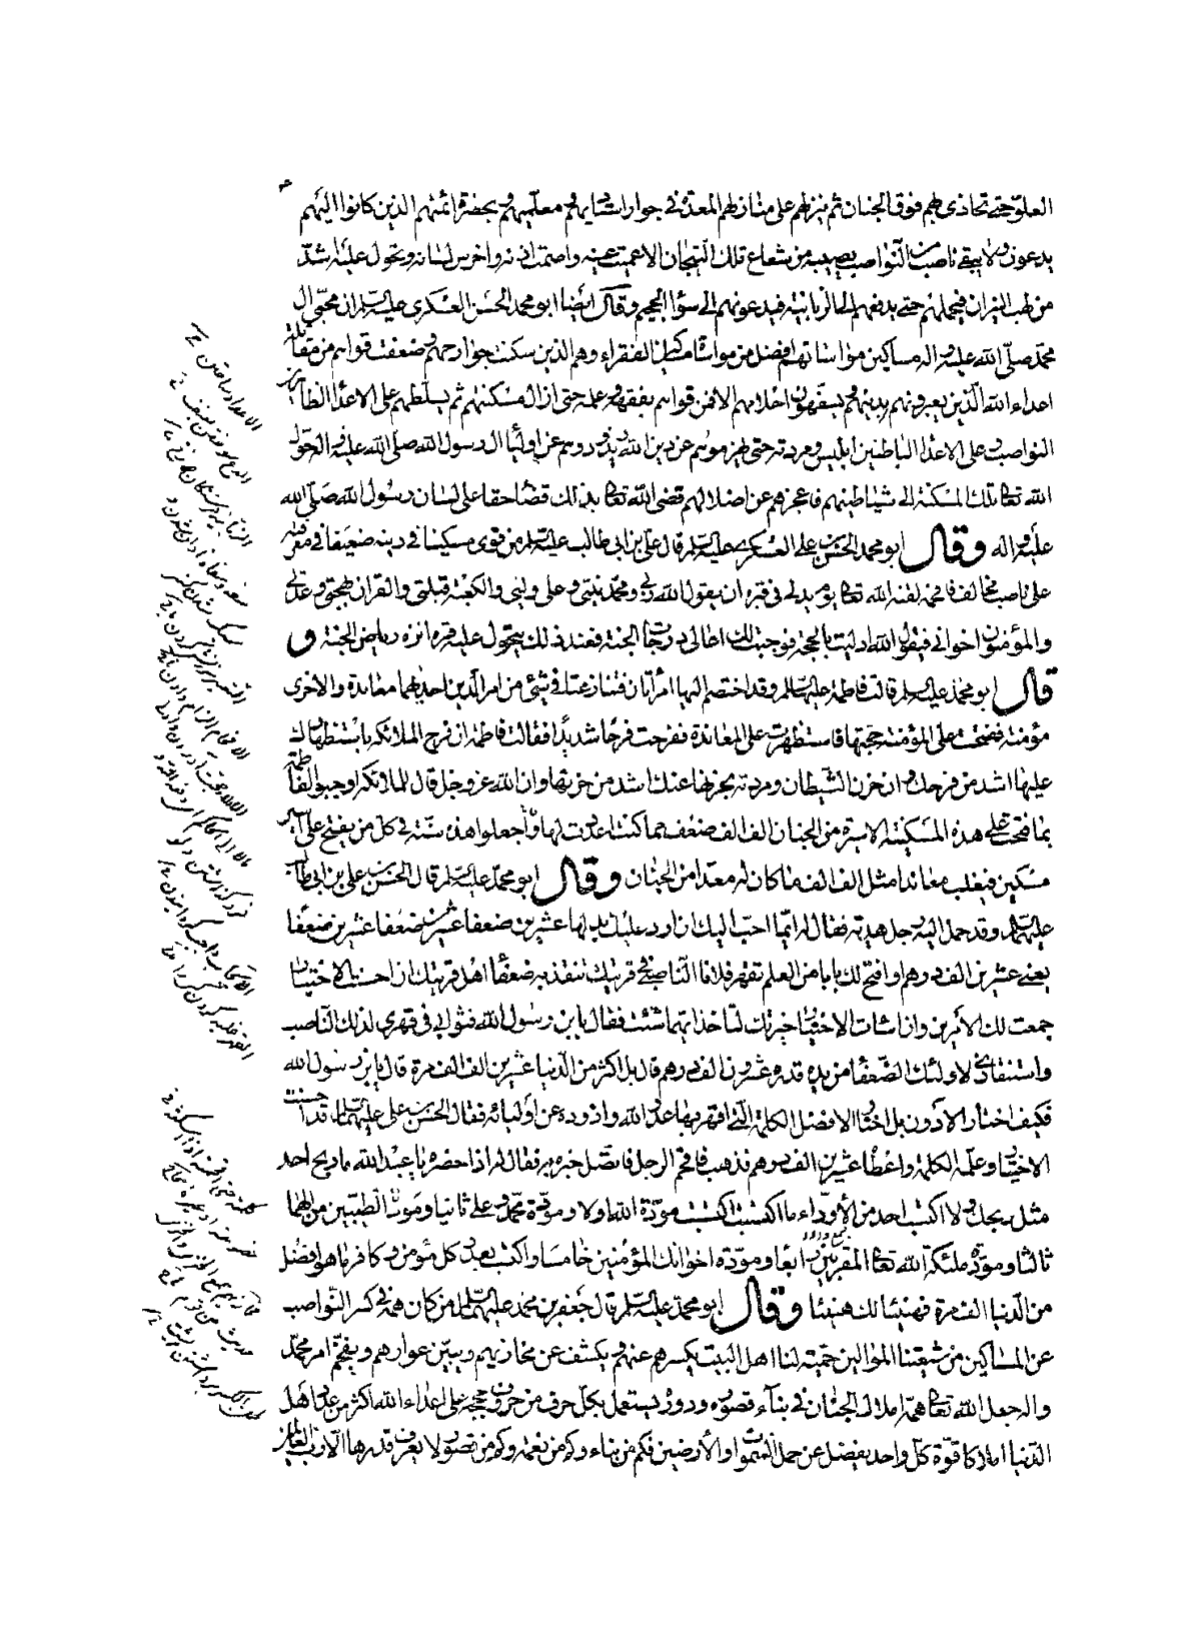 العلو حتى تحاذى بهم فوق الجنان ثم ينزلهم على منازلهم المعدة فى جوار استاديهم ومعلميهم وبحضرة ائمتهم الذين كانوا اليهم
يدعون ولا يبقى ناصب من النواصب يصيبه من شعاع تلك التيجان الا عميت عينه واصمت اذنه واخرس لسانه وتحول عليه اشد
من لهب النيران فيحملهم حتى يدفعهم الى الزبانية فيدعونهم الى سواء الجحيم وقال ايضا ابو محمد الحسن العسكرى عليه السلم ان محبى ال
محمد صلى الله عليه واله مساكين مواساتهم افضل من مواساة مساكين الفقراء وهم الذين سكنت جوارحهم وضعفت قواهم من مقاتلة
اعداء الله الذين يعيرونهم بدينهم ويسفهون احلامهم الا فمن قواهم بفقهه وعلمه حتى ازال مسكنتهم ثم يسلطهم على الاعداء الظاهرين
النواصب وعلى الاعداء الباطنين ابليس ومردته حتى يهزموهم عن دين الله ويذودوهم عن اولياء ال رسول الله صلى الله عليه واله حول
الله تعالى تلك المسكنة الى شياطينهم فاعجزهم عن اضلالهم قضى الله تعالى بذلك قضاء حقا على لسان رسول الله صلى الله
عليه واله وقال ابو محمد الحسن بن على العسكرى عليه السلم قال على بن ابى طالب عليه السلم من قوى مسكينا فى دينه ضعيفا فى معرفته
على ناصب مخالف فافحمه لقنه الله تعالى يوم يدلى فى قبره ان يقول الله ربى ومحمد نبيى وعلى وليى والكعبة قبلتى والقران بهجتى وعدتى
والمؤمنون اخوانى فيقول الله ادليت بالحجة فوجبت لك اعالى درجات الجنة فعند ذلك يتحول عليه قبره انزه رياض الجنة و
قال ابو محمد عليه السلم قالت فاطمة عليها السلم وقد اختصم اليها امراتان فتنازعتا فى شئ من امر الدين احديهما معاندة والاخرى
مؤمنة ففتحت على المؤمنة حجتها فاستظهرت على المعاندة ففرحت فرحا شديدا فقالت فاطمة ان فرح الملائكة باستظهارك
عليها اشد من فرحك وان حزن الشيطان ومردته بحزنها عنك اشد من حزنها وان الله عز وجل قال للملائكة اوجبوا لفاطمة
بما فتحت على هذه المسكينة الاسيرة من الجنان الف الف ضعف مما كنت اعددت لها واجعلوا هذه سنة فى كل من يفتح على اسير
مسكين فيغلب معاندا مثل الف الف ما كان له معدا من الجنان وقال ابو محمد عليه السلم قال الحسن بن على بن ابى طالب
عليهما السلم وقد حمل اليه رجل هدية فقال له ايما احب اليك ان ارد عليك بدلها عشرين ضعفا عشرين ضعفا عشرين ضعفا
يعنى عشرين الف درهم او افتح لك بابا من العلم تقهر فلانا الناصبى فى قريتك تنقذ به ضعفاء اهل قريتك ان احسنت الاختيار
جمعت لك الامرين وان اسات الاختيار خيرتك لتاخذ ايهما شئت فقال يابن رسول الله فثوابى فى قهرى لذلك الناصب
واستنقاذى لاولئك الضعفاء من يده قدره عشرون الف درهم قال بل اكثر من الدنيا عشرين الف الف مرة قال يابن رسول الله
فكيف اختار الادون بل اختار الافضل الكلمة التى اقهر بها عدو الله واذوده عن اوليائه فقال الحسن بن على عليهما السلم قد احسنت
الاختيار وعلمه الكلمة واعطاه عشرين الف درهم فذهب فافحم الرجل فاتصل خبره به فقال له اذ احضره يا عبد الله ما ربح احد
مثل ربحك ولا اكتسب احد من الاوداء ما اكتسبت اكتسبت مودة الله اولا ومودة محمد وعلى ثانيا ومودة الطيبين من الهما
ثالثا ومودة ملئكة الله تعالى المقربين رابعا ومودة اخوانك المؤمنين خامسا واكتسبت بعدد كل مؤمن وكافر ما هو افضل
من الدنيا الف مرة فهنيئا لك هنيئا وقال ابو محمد عليه السلم قال جعفر بن محمد عليهما السلم من كان همه فى كسر النواصب
عن المساكين من شيعتنا الموالين حمية لنا اهل البيت يكسرهم عنهم ويكشف عن مخازيهم ويبين عوارهم ويفخم امر محمد
واله جعل الله تعالى همة املاك الجنان فى بناء قصوره ودوره يستعمل بكل حرف من حروف حججه على اعداء الله اكثر من عدد اهل
الدنيا املاكا قوة كل واحد يفضل عن حمل السموات والارضين فكم من بناء وكم من نعمة وكم من قصور لا يعرف قدرها الا رب العالمين